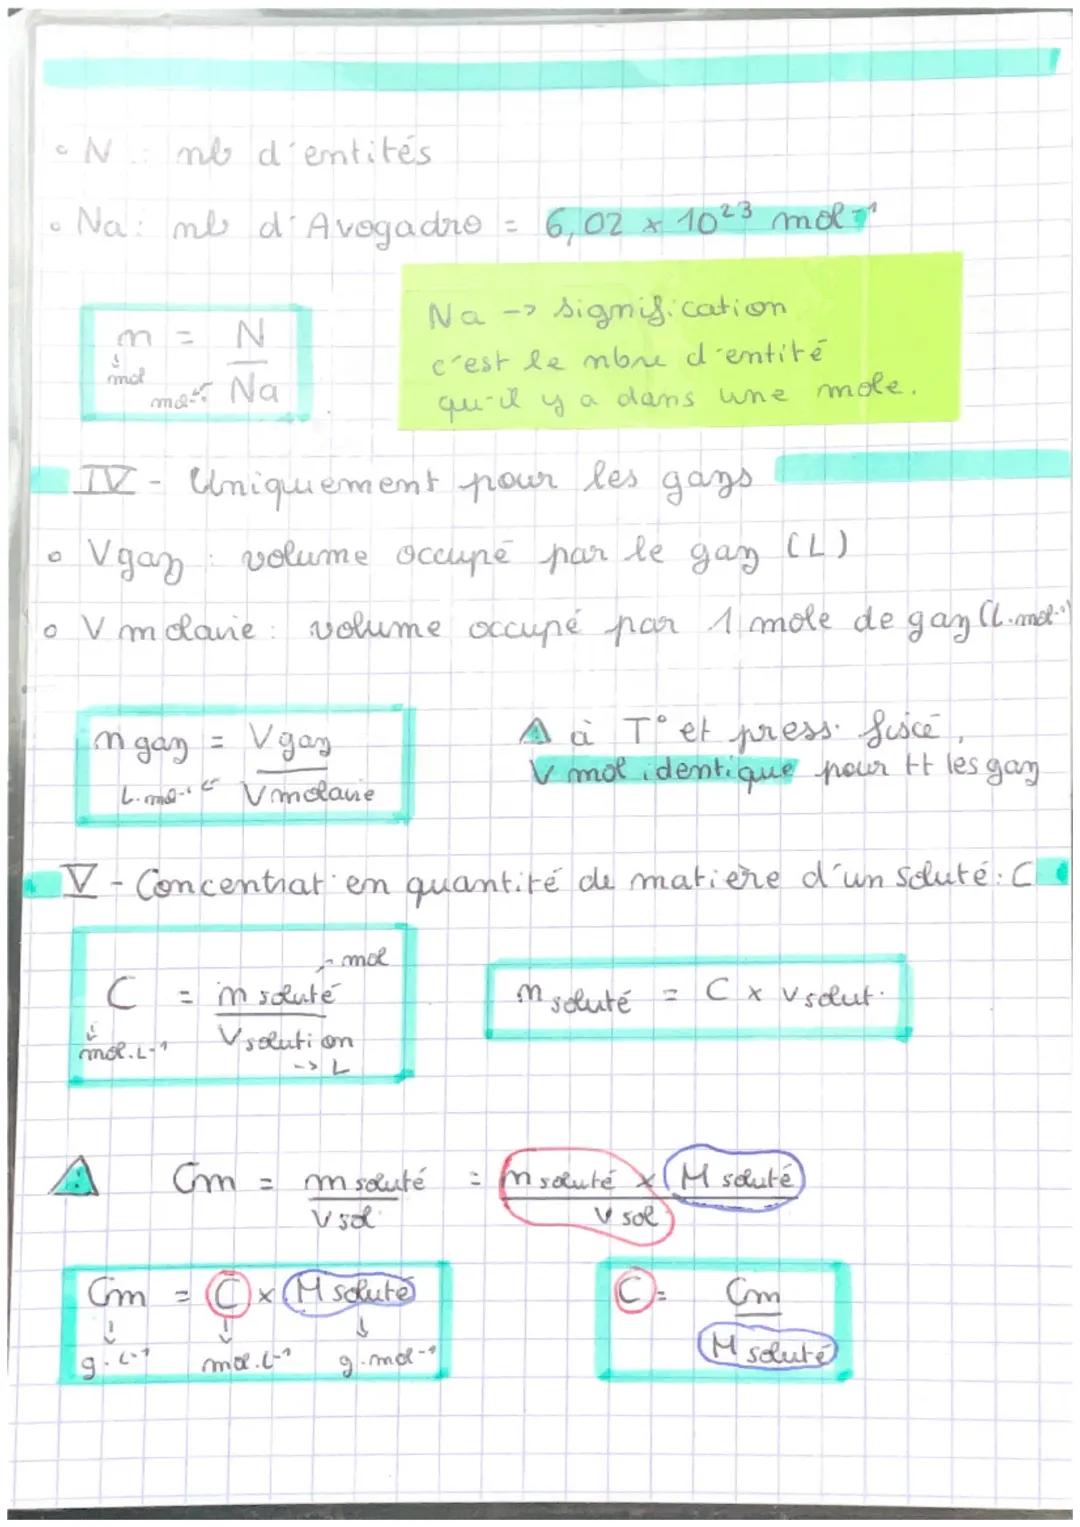 ◦ N : nb d'entités
◦ Na : nb d'Avogadro = 6,02 × 10²³ mol⁻¹
n = N / Na
mol
mol⁻¹
Na -> signification
c'est le nbre d'entité
qu'il y a dans une mole.
IV - Uniquement pour les gazs
◦ Vgaz : volume occupé par le gaz (L)
◦ V molaire : volume occupé par 1 mole de gaz (L.mol⁻¹)
n gaz = Vgaz / V molaire
L.mol⁻¹
⚠ à T° et press. fixé,
V mol identique pour tt les gaz
V - Concentrat° en quantité de matière d'un soluté : C
C = n soluté / V solution
mol
mol.L⁻¹
-> L
n soluté = C × V solut.
⚠ Cm = m soluté / V sol. = n soluté × M soluté / V sol
Cm = C × M soluté
g.L⁻¹ mol.L⁻¹ g.mol⁻¹
C = Cm / M soluté